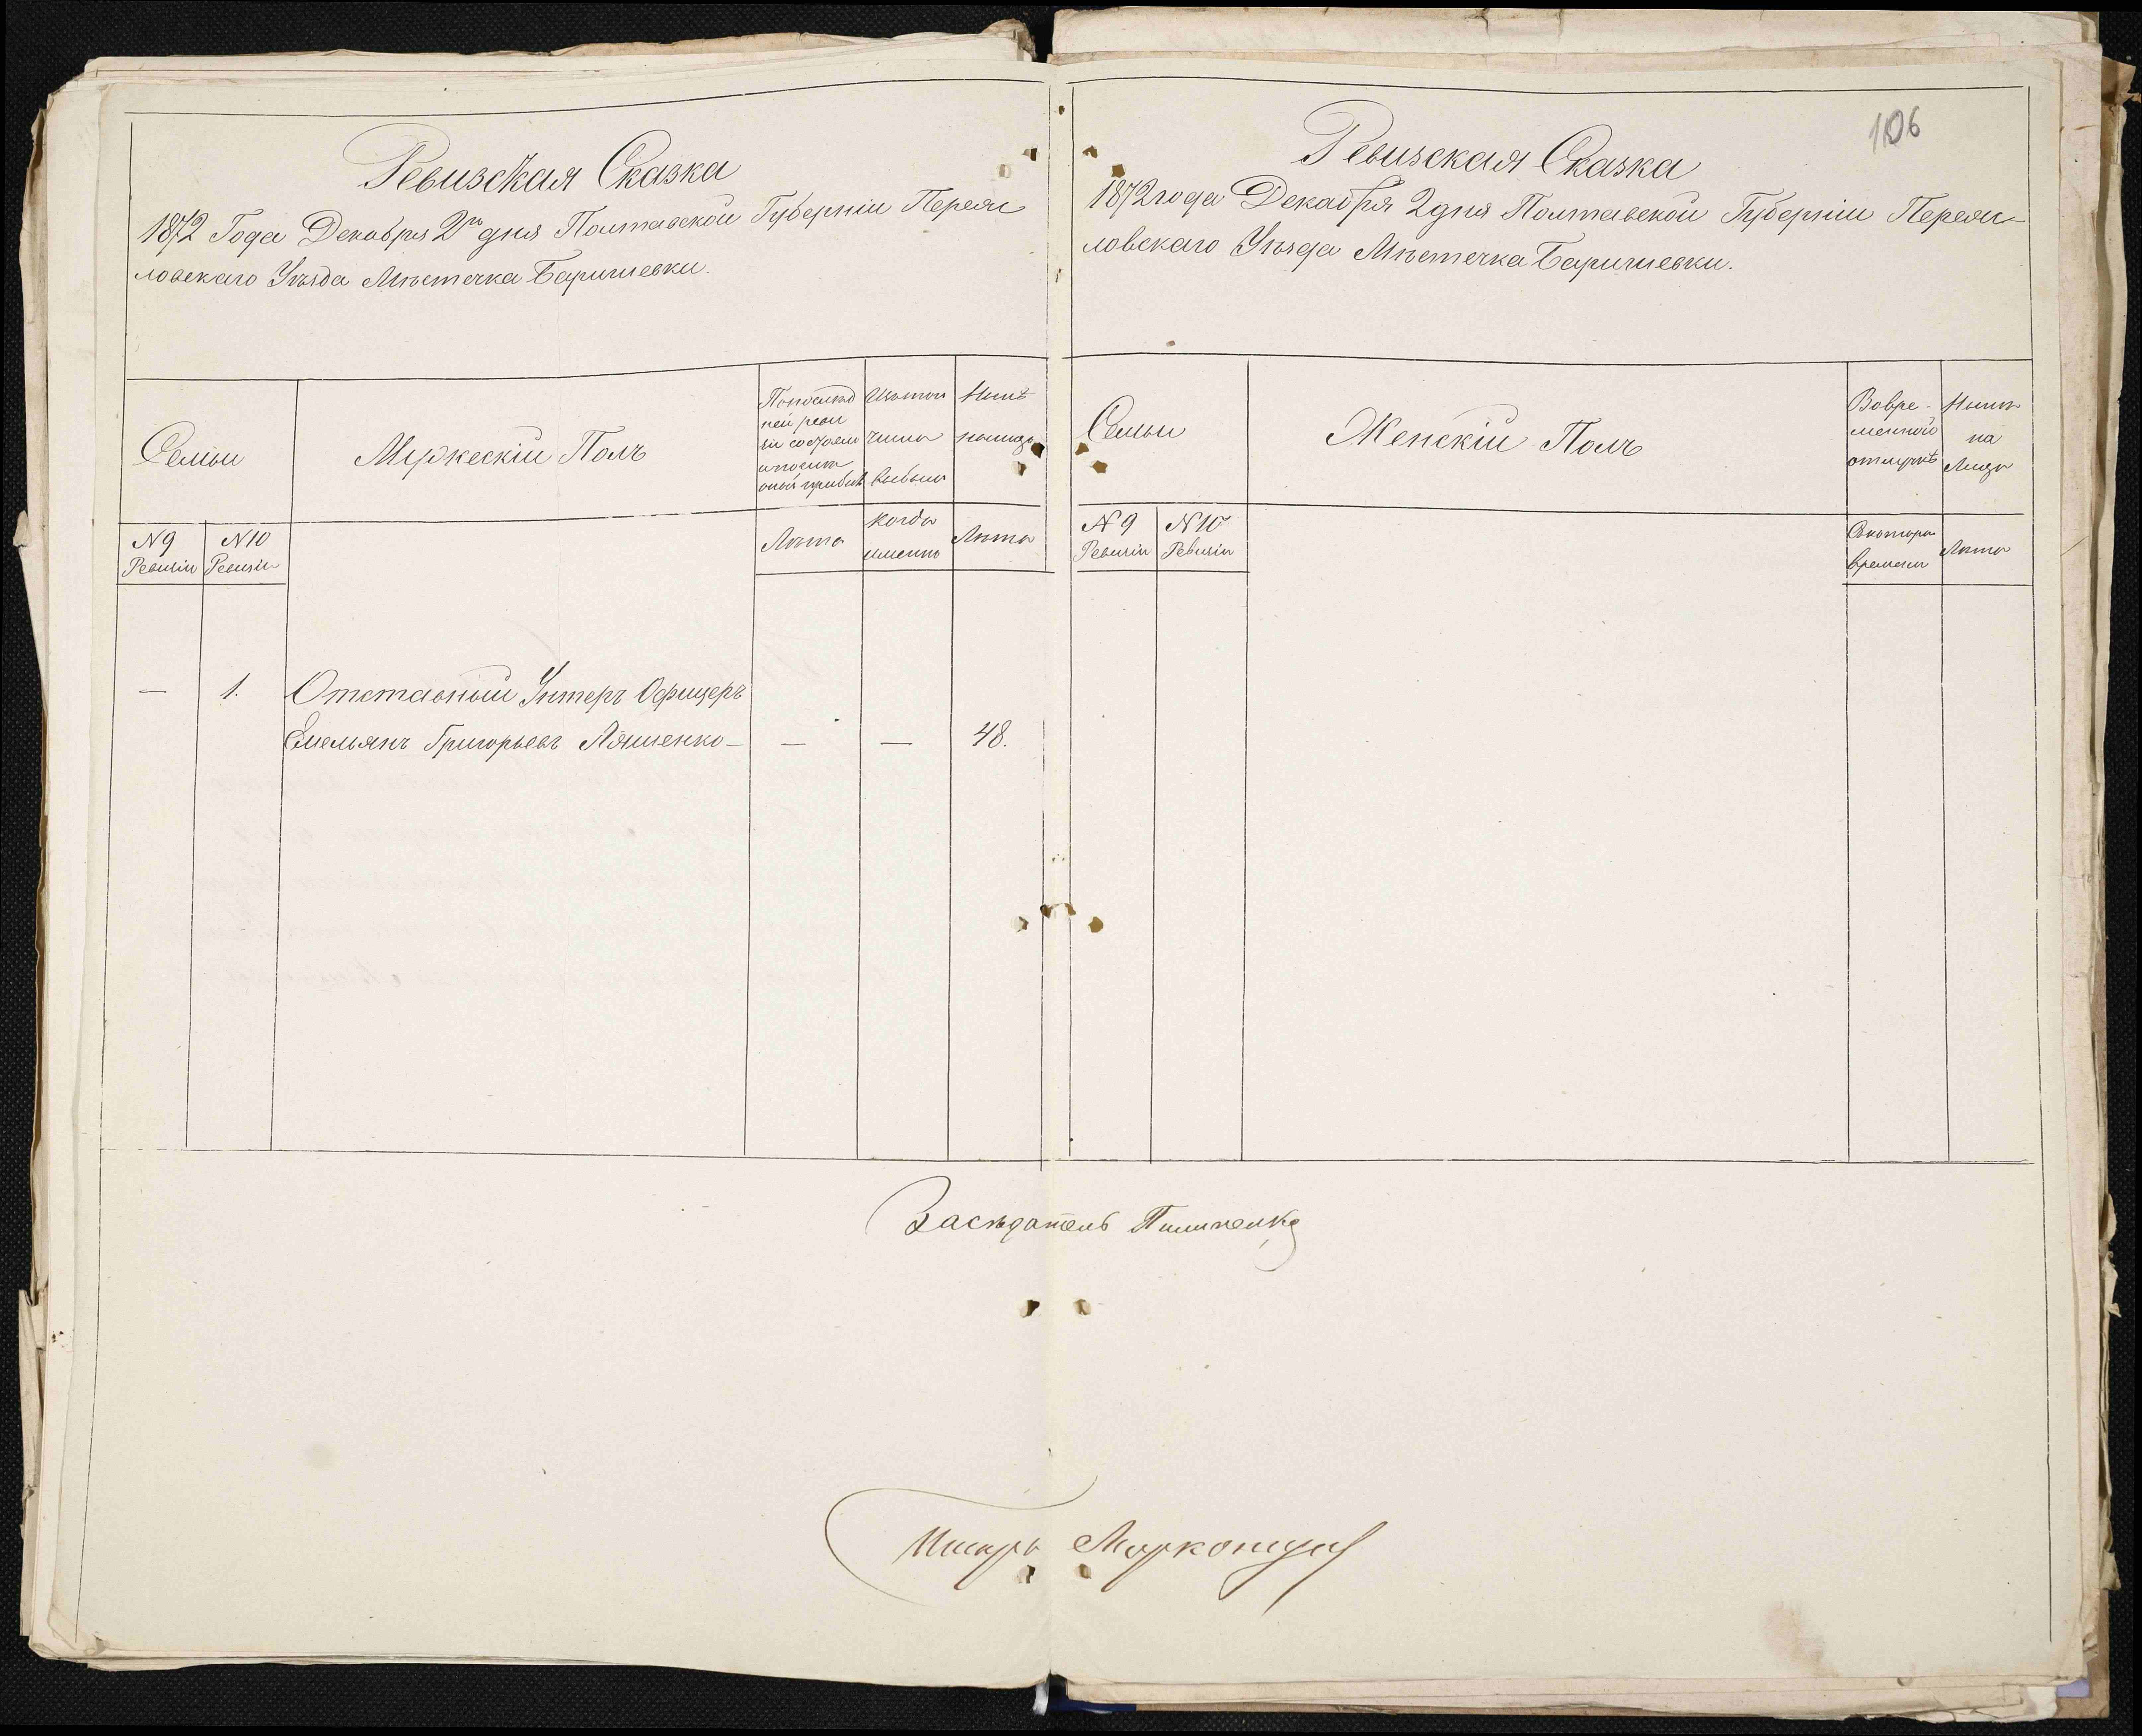 Ревизская Сказка
1872 Года Декабря 2го дня Полтавской Губерніи Переяс
ловскаго Уѣзда Мѣстечка Баришевки.
Семьи
Мужескій Полъ
Попослѣд
ней реви
зіи состояло
и послѣ
оной прибыло
Изъ того
числа
выбыло
Нынѣ
налицо
№ 9
Ревизіи
№ 10
Ревизіи
Лѣта
когда
именно
Лѣта
— 1. Отставный Унтеръ Офицеръ
Емельянъ Григорьевъ Ляшенко — — — 48.
106
Ревизская Сказка
1872 года Декабря 2 дня Полтавской Губерніи Переяс-
ловскаго Уѣзда Мѣстечка Баришевки.
Семьи
Женскій Полъ
Вовре-
менной
отлучкѣ
Нынѣ
на
Лицо
№ 9
Ревизіи
№ 10
Ревизіи
Скотора
времени
Лѣта
Засѣдатель Пилипенко
Писарь